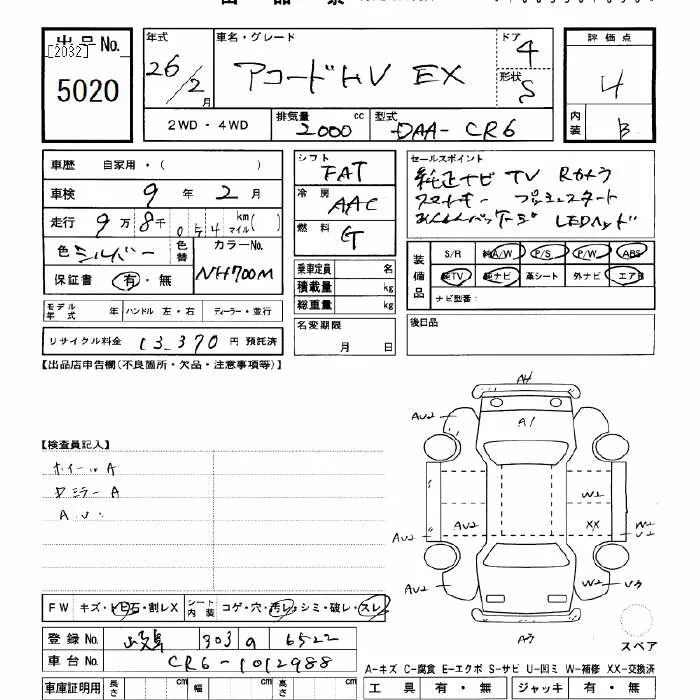 出品No. [2032] 5020
年式 26/2月
車名・グレード アコードHV EX
ドア 4
形状 S
評価点 4
内装 B
2WD・4WD
排気量 2000 cc
型式 DAA-CR6
車歴 自家用・( )
車検 9年 2月
走行 9万8千054 km マイル( )
色 シルバー
色替
カラーNo. NH700M
保証書 有・無
シフト FAT
冷房 AAC
燃料 G
乗車定員 名
積載量 kg
総重量 kg
セールスポイント
純正ナビ TV Rカメラ
スマートキー プッシュスタート
あんしんパッケージ LEDヘッド
装備品 S/R 純A/W P/S P/W ABS
純TV 純ナビ 革シート 外ナビ エアB
ナビ型番:
モデル年式 年 ハンドル 左・右 ディーラー・並行
名変期限 月 日
後日品
リサイクル料金 13,370 円 預託済
【出品店申告欄(不良箇所・欠品・注意事項等)】
【検査員記入】
ホイールA
ドミラーA
A4
AU2 A1
W2
AU2 AU2 XX W2
U2
AU2 W2 U3
A3
スペア
FW キズ・トビ石・割レX シート内装 コゲ・穴・汚レ・シミ・破レ・スレ
登録No. 303 6522
車台No. CR6-1012988
A-キズ C-腐食 E-エクボ S-サビ U-凹ミ W-補修 XX-交換済
車庫証明用 長さ cm 幅 cm 高さ cm
工具 有・無 ジャッキ 有・無